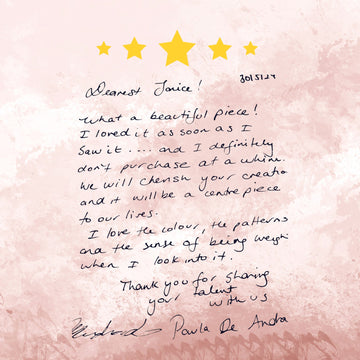 30/5/24
Dearest Janice!
What a beautiful piece!
I loved it as soon as I
saw it .... and I definitely
don't purchase at a whim.
We will cherish your creatio
and it will be a centre piece
to our lives.
I love the colour, the patterns
and the sense of being weigh
when I look into it.
Thank you for sharing
your talent
with us
Paula De Andra